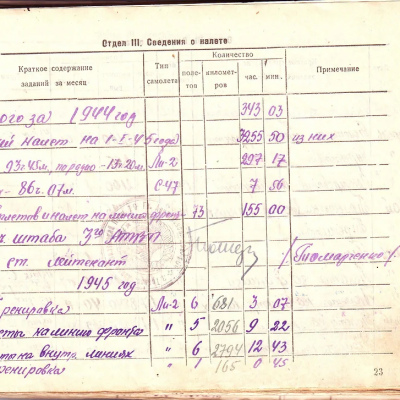 Отдел III. Сведения о налете
Краткое содержание заданий за месяц
Тип самолета
Количество
поле-тов
километ-ров
час.
мин.
Примечание
ого за 1944 год 343 03
ий налет на 1-I-45 года) 3255 50 из них
93ч 45м, ночью - 13ч 20м. Ли-2 297 17
- 86 ч. 07м. С-47 7 56
летов и налет на линию фрон- 73 155 00
к штаба 7го
ст. лейтенант /Пономарченко/
1945 год
Тренировка Ли-2 6 681 3 07
еты на линию фронта " 5 2056 9 22
на внутр. линиях " 6 2794 12 43
тренировка " 1 165 0 45
23